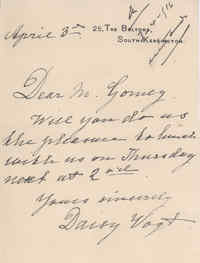 April 3rd
25, The Boltons,
South Kensington.
Dear Mr. Gomey
Will you do us
the pleasure to lunch
with us on Thursday
next at 2
Yours sincerely
Daisy Vogt